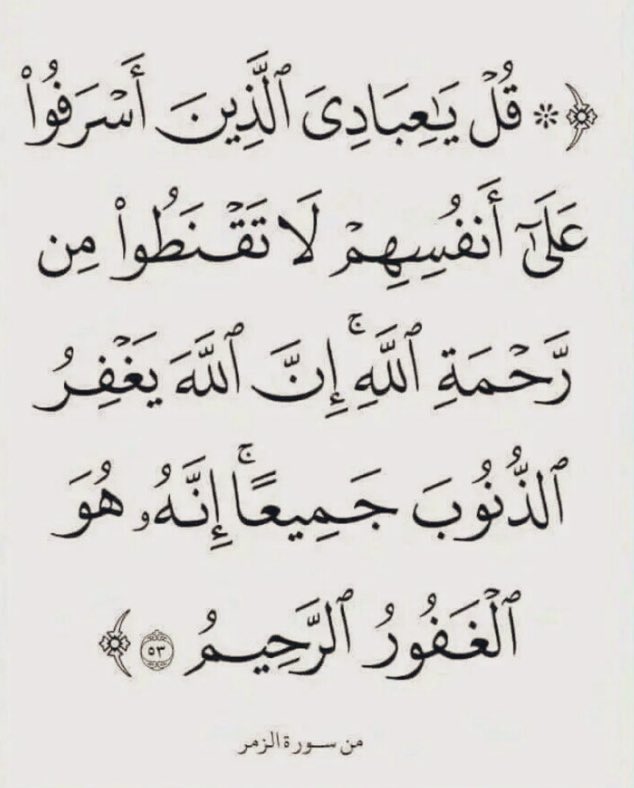 ﴿ ۞ قُلۡ يَـٰعِبَادِىَ ٱلَّذِينَ أَسۡرَفُوا۟
عَلَىٰٓ أَنفُسِهِمۡ لَا تَقۡنَطُوا۟ مِن
رَّحۡمَةِ ٱللَّهِۚ إِنَّ ٱللَّهَ يَغۡفِرُ
ٱلذُّنُوبَ جَمِيعًاۚ إِنَّهُۥ هُوَ
ٱلۡغَفُورُ ٱلرَّحِيمُ ٥٣ ﴾
من سورة الزمر